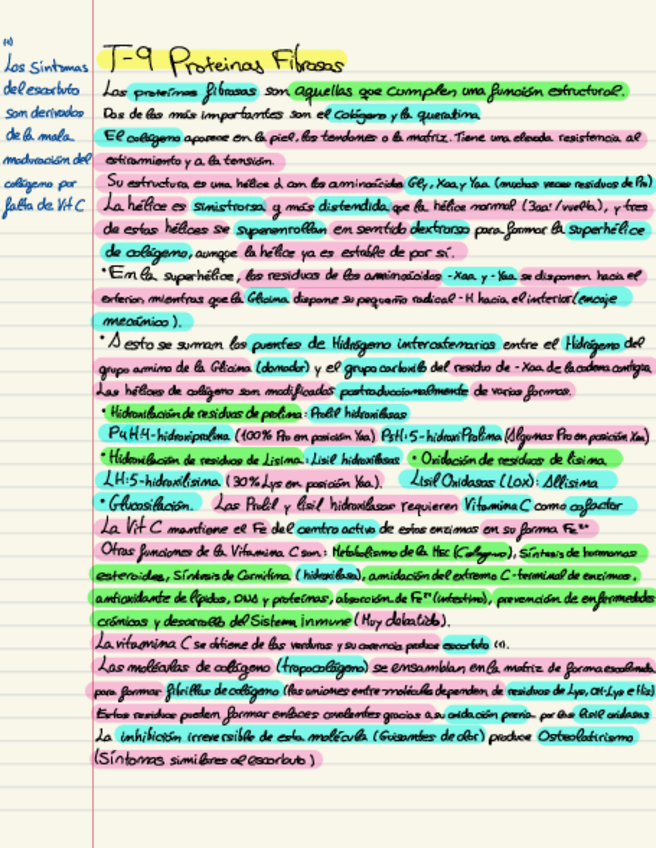 (1)
Los Síntomas
del escorbuto
son derivados
de la mala
maduración del
colágeno por
falta de Vit C
T-9 Proteinas Fibrosas
Las proteínas fibrosas son aquellas que cumplen una función estructural.
Dos de las más importantes son el colágeno y la queratina
El colágeno aparece en la piel, los tendones o la matriz. Tiene una elevada resistencia al
estiramiento y a la tensión.
Su estructura es una hélice α con los aminoácidos Gly, Xaa y Yaa (muchas veces residuos de Pro)
La hélice es sinistrorsa y más distendida que la hélice normal (3aa'/vuelta), y tres
de estas hélices se superenrollan en sentido dextrorso para formar la superhélice
de colágeno, aunque la hélice ya es estable de por sí.
•En la superhélice, los residuos de los aminoácidos -Xaa y -Yaa se disponen hacia el
exterior, mientras que la Glicina dispone su pequeño radical -H hacia el interior (encaje
mecánico).
•A esto se suman los puentes de Hidrógeno intercatenarios entre el Hidrógeno del
grupo amino de la Glicina (donador) y el grupo carbonilo del residuo de -Xaa de la cadena contigua.
Las hélices de colágeno son modificadas postraduccionalmente de varias formas.
• Hidroxilación de residuos de prolina: Prolil hidroxilasas
P4H:4-hidroxiprolina (100% Pro en posición Yaa) P3H:3-hidroxiProlina (Algunas Pro en posición Xaa)
• Hidroxilación de residuos de Lisina: Lisil hidroxilasas • Oxidación de residuos de lisina
LH:5-hidroxilisina (30% Lys en posición Yaa). Lisil Oxidasas (LOX): Allisina
• Glucosilación. Las Prolil y lisil hidroxilasas requieren Vitamina C como cofactor
La Vit C mantiene el Fe del centro activo de estas enzimas en su forma Fe²⁺
Otras funciones de la Vitamina C son: Metabolismo de la (Colágeno), Síntesis de hormonas
esteroides, Síntesis de Carnitina (hidroxilasa), amidación del extremo C-terminal de enzimas,
antioxidante de lípidos, DNA y proteínas, absorción de Fe (intestino), prevención de enfermedades
crónicas y desarrollo del Sistema inmune (Muy debatido).
La vitamina C se obtiene de las verduras y su carencia produce escorbuto (1).
Las moléculas de colágeno (tropocolágeno) se ensamblan en la matriz de forma escalonada
para formar fibrillas de colágeno (las uniones entre molécula dependen de residuos de Lys, OH-Lys e His)
Estos residuos pueden formar enlaces covalentes gracias a su oxidación previa por las lisil oxidasas
La inhibición irreversible de esta molécula (Guisantes de olor) produce Osteolatirismo
(Síntomas similares al escorbuto)